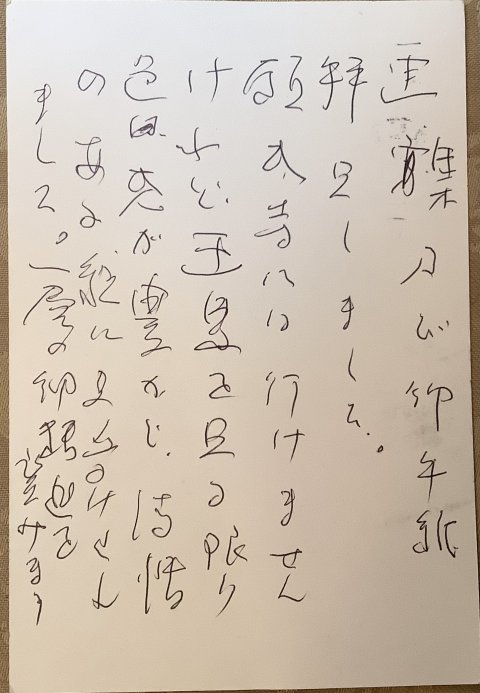 画集及び御手紙
拝見しました。
には行けません
けれど画を見る限り
色が豊かで、詩情
のある絵に見受けられ
ました。一層の御精進を望みます